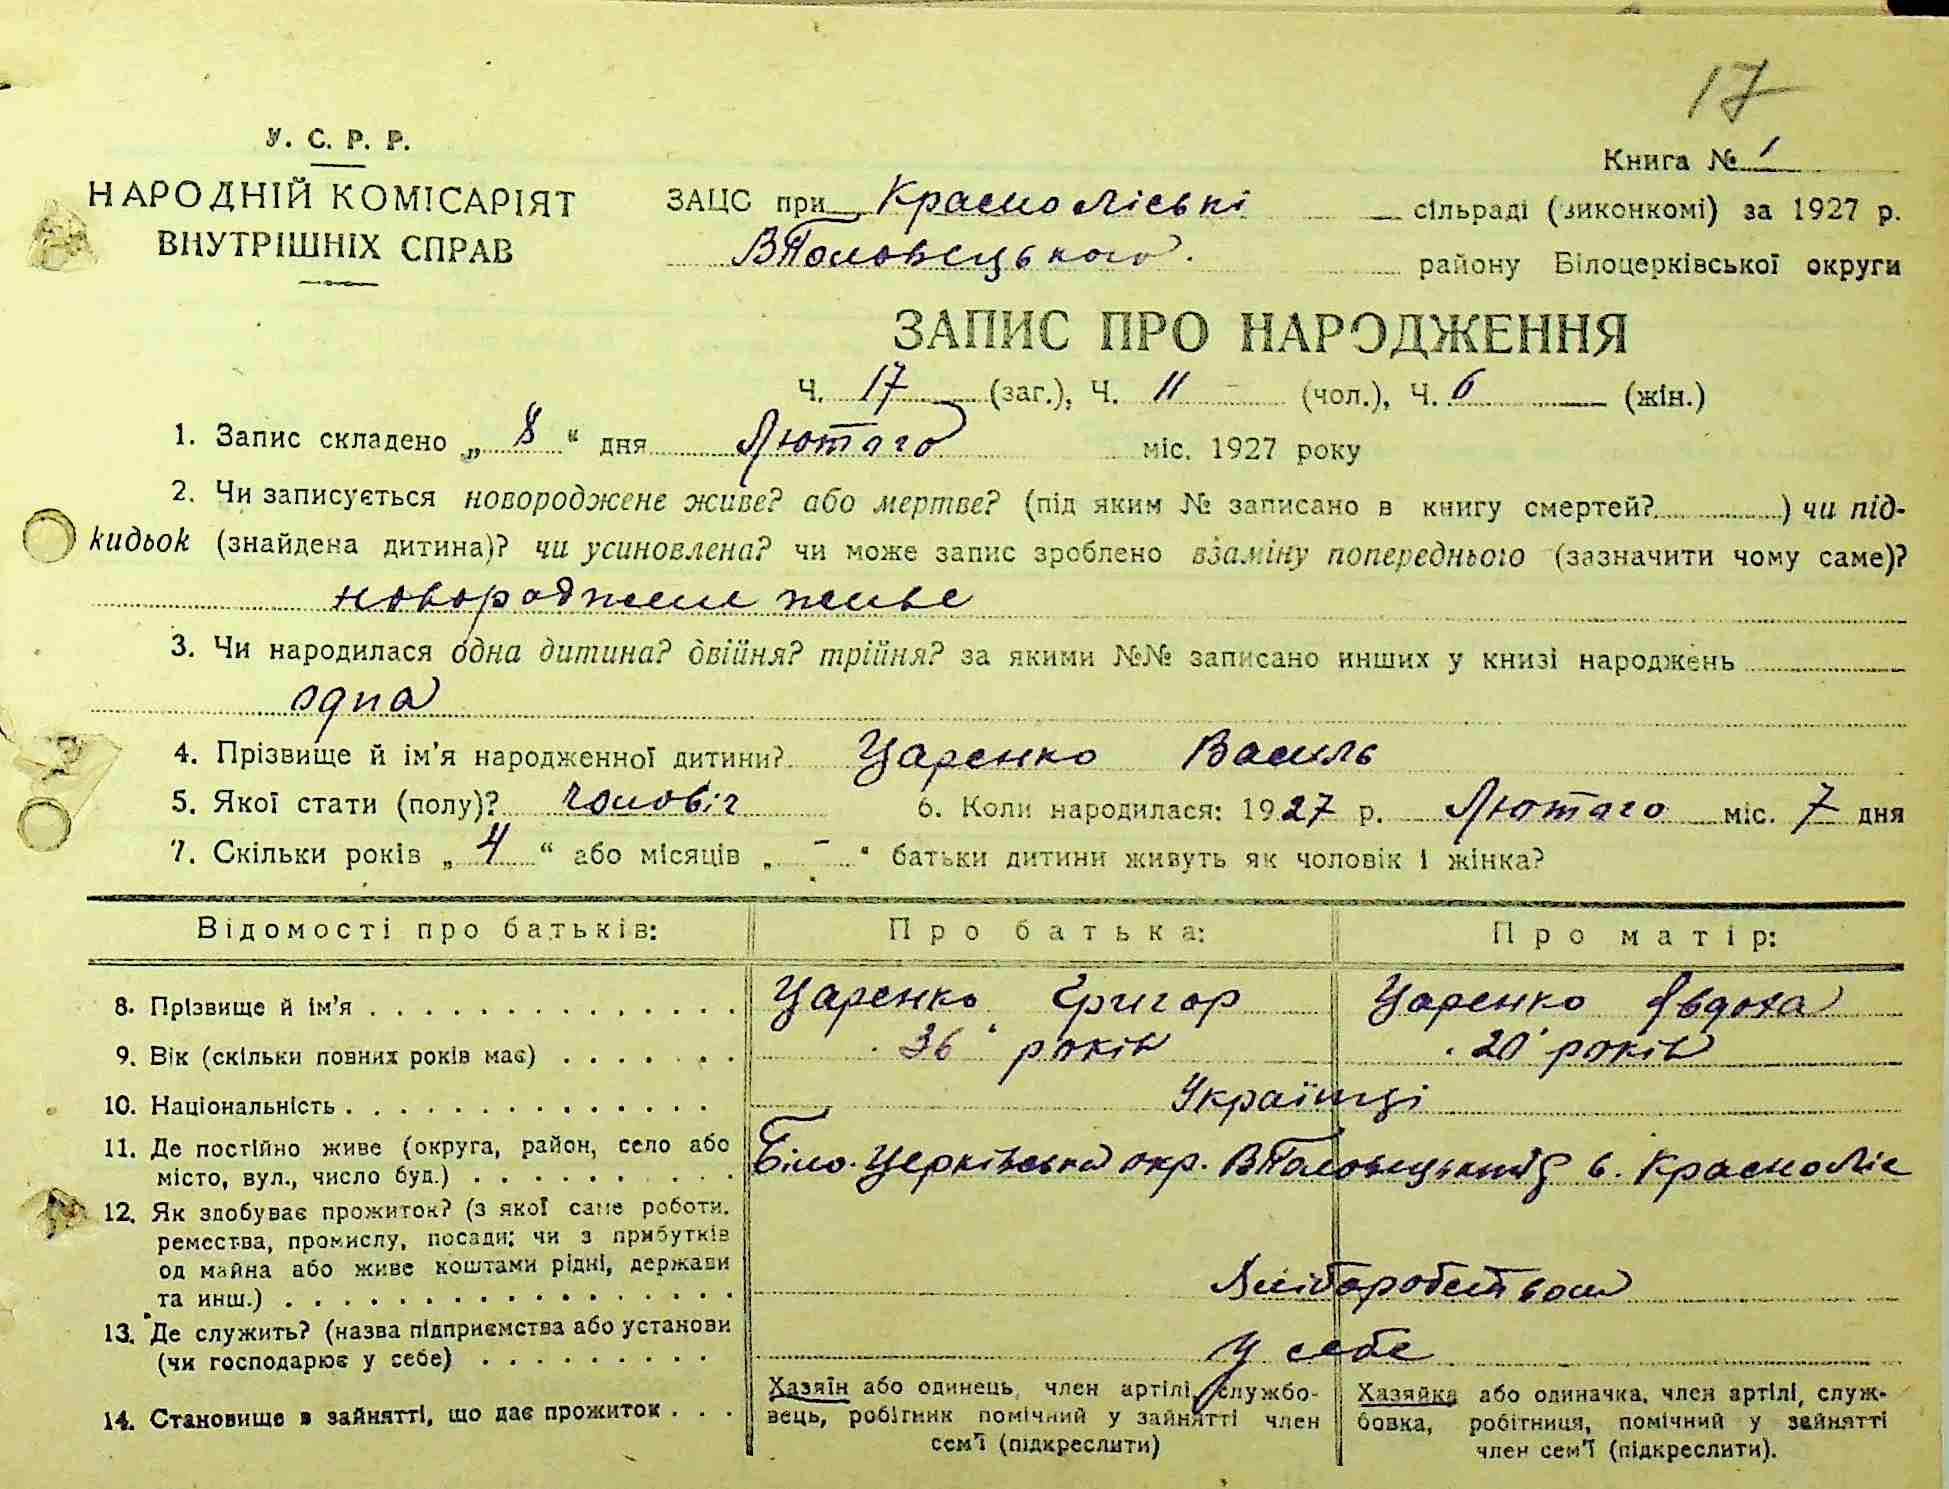 17
У. С. Р. Р.
НАРОДНІЙ КОМІСАРІЯТ
ВНУТРІШНІХ СПРАВ
Книга № 1
ЗАЦС при Красноліські сільраді (виконкомі) за 1927 р.
ВПоловецького району Білоцерківської округи
ЗАПИС ПРО НАРОДЖЕННЯ
Ч. 17 (заг.), Ч. 11 (чол.), Ч. 6 (жін.)
1. Запис складено „ 8 “ дня Лютаго міс. 1927 року
2. Чи записується новороджене живе? або мертве? (під яким № записано в книгу смертей? ) чи під-
кидьок (знайдена дитина)? чи усиновлена? чи може запис зроблено взаміну попереднього (зазначити чому саме)?
новороджене живе
3. Чи народилася одна дитина? двійня? трійня? за якими №№ записано инших у книзі народжень
одна
4. Прізвище й ім'я народженної дитини? Царенко Василь
5. Якої стати (полу)? чоловіч 6. Коли народилася: 1927 р. Лютаго міс. 7 дня
7. Скільки років „ 4 “ або місяців „ - “ батьки дитини живуть як чоловік і жінка?
Відомості про батьків: Про батька: Про матір:
8. Прізвище й ім'я Царенко Григор Царенко Явдоха
9. Вік (скільки повних років має) 36 років 20 років
10. Національність Українці
11. Де постійно живе (округа, район, село або
місто, вул., число буд.) Біло-Церківська окр. ВПоловецький р с. Красноліс
12. Як здобуває прожиток? (з якої саме роботи.
ремества, промислу, посади; чи з прибутків
од майна або живе коштами рідні, держави
та инш.) Хліборобством
13. Де служить? (назва підприємства або установи
(чи господарює у себе) у себе
14. Становище в зайнятті, що дає прожиток
Хазяїн або одинець, член артілі, службо-
вець, робітник помічний у зайнятті член
сем'ї (підкреслити)
Хазяйка або одиначка, член артілі, служ-
бовка, робітниця, помічний у зайнятті
член сем'ї (підкреслити).